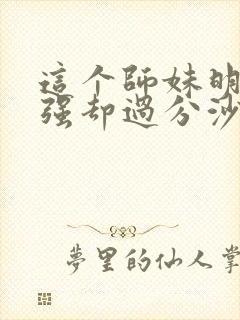 這个師妹明
强却過分沙
夢里的仙人掌